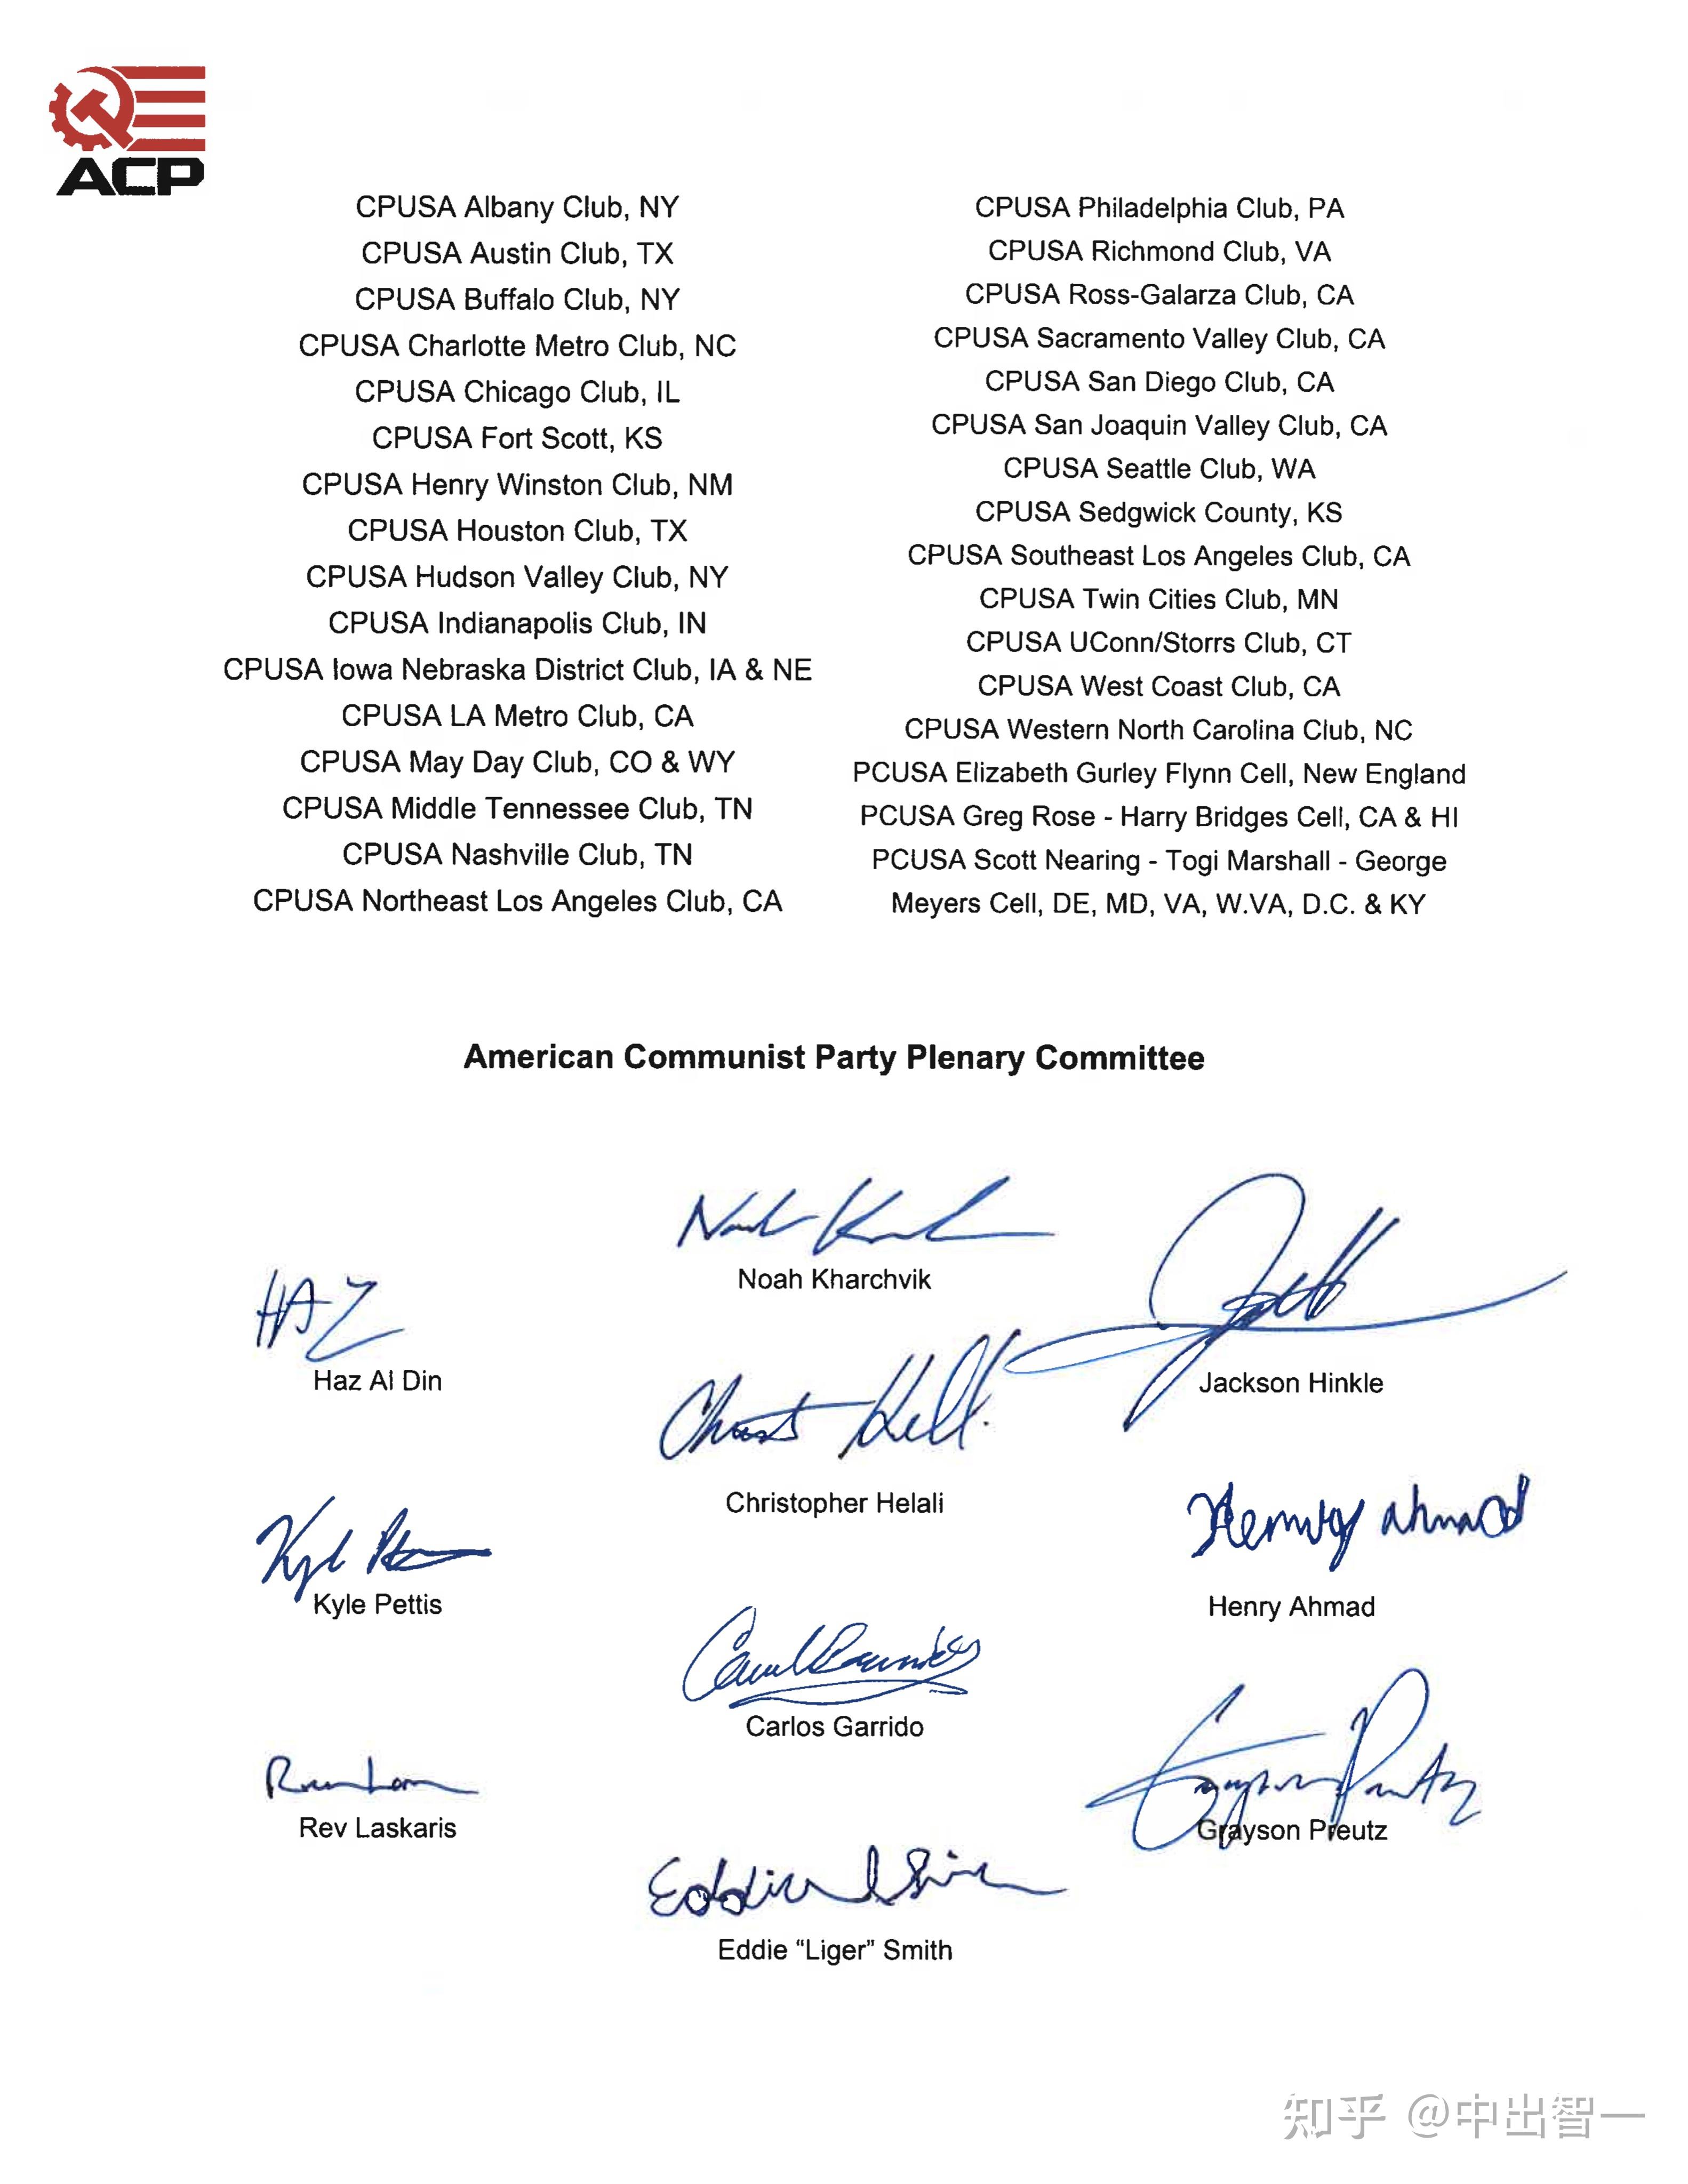 ACP
CPUSA Albany Club, NY
CPUSA Austin Club, TX
CPUSA Buffalo Club, NY
CPUSA Charlotte Metro Club, NC
CPUSA Chicago Club, IL
CPUSA Fort Scott, KS
CPUSA Henry Winston Club, NM
CPUSA Houston Club, TX
CPUSA Hudson Valley Club, NY
CPUSA Indianapolis Club, IN
CPUSA Iowa Nebraska District Club, IA & NE
CPUSA LA Metro Club, CA
CPUSA May Day Club, CO & WY
CPUSA Middle Tennessee Club, TN
CPUSA Nashville Club, TN
CPUSA Northeast Los Angeles Club, CA
CPUSA Philadelphia Club, PA
CPUSA Richmond Club, VA
CPUSA Ross-Galarza Club, CA
CPUSA Sacramento Valley Club, CA
CPUSA San Diego Club, CA
CPUSA San Joaquin Valley Club, CA
CPUSA Seattle Club, WA
CPUSA Sedgwick County, KS
CPUSA Southeast Los Angeles Club, CA
CPUSA Twin Cities Club, MN
CPUSA UConn/Storrs Club, CT
CPUSA West Coast Club, CA
CPUSA Western North Carolina Club, NC
PCUSA Elizabeth Gurley Flynn Cell, New England
PCUSA Greg Rose - Harry Bridges Cell, CA & HI
PCUSA Scott Nearing - Togi Marshall - George
Meyers Cell, DE, MD, VA, W.VA, D.C. & KY
American Communist Party Plenary Committee
Noah Kharchvik
HAZ
Haz Al Din
Jackson Hinkle
Christopher Helali
Kyle Pettis
Henry Ahmad
Henry Ahmad
Carlos Garrido
Rev Laskaris
Grayson Preutz
Eddie “Liger” Smith
知乎 @中出智一